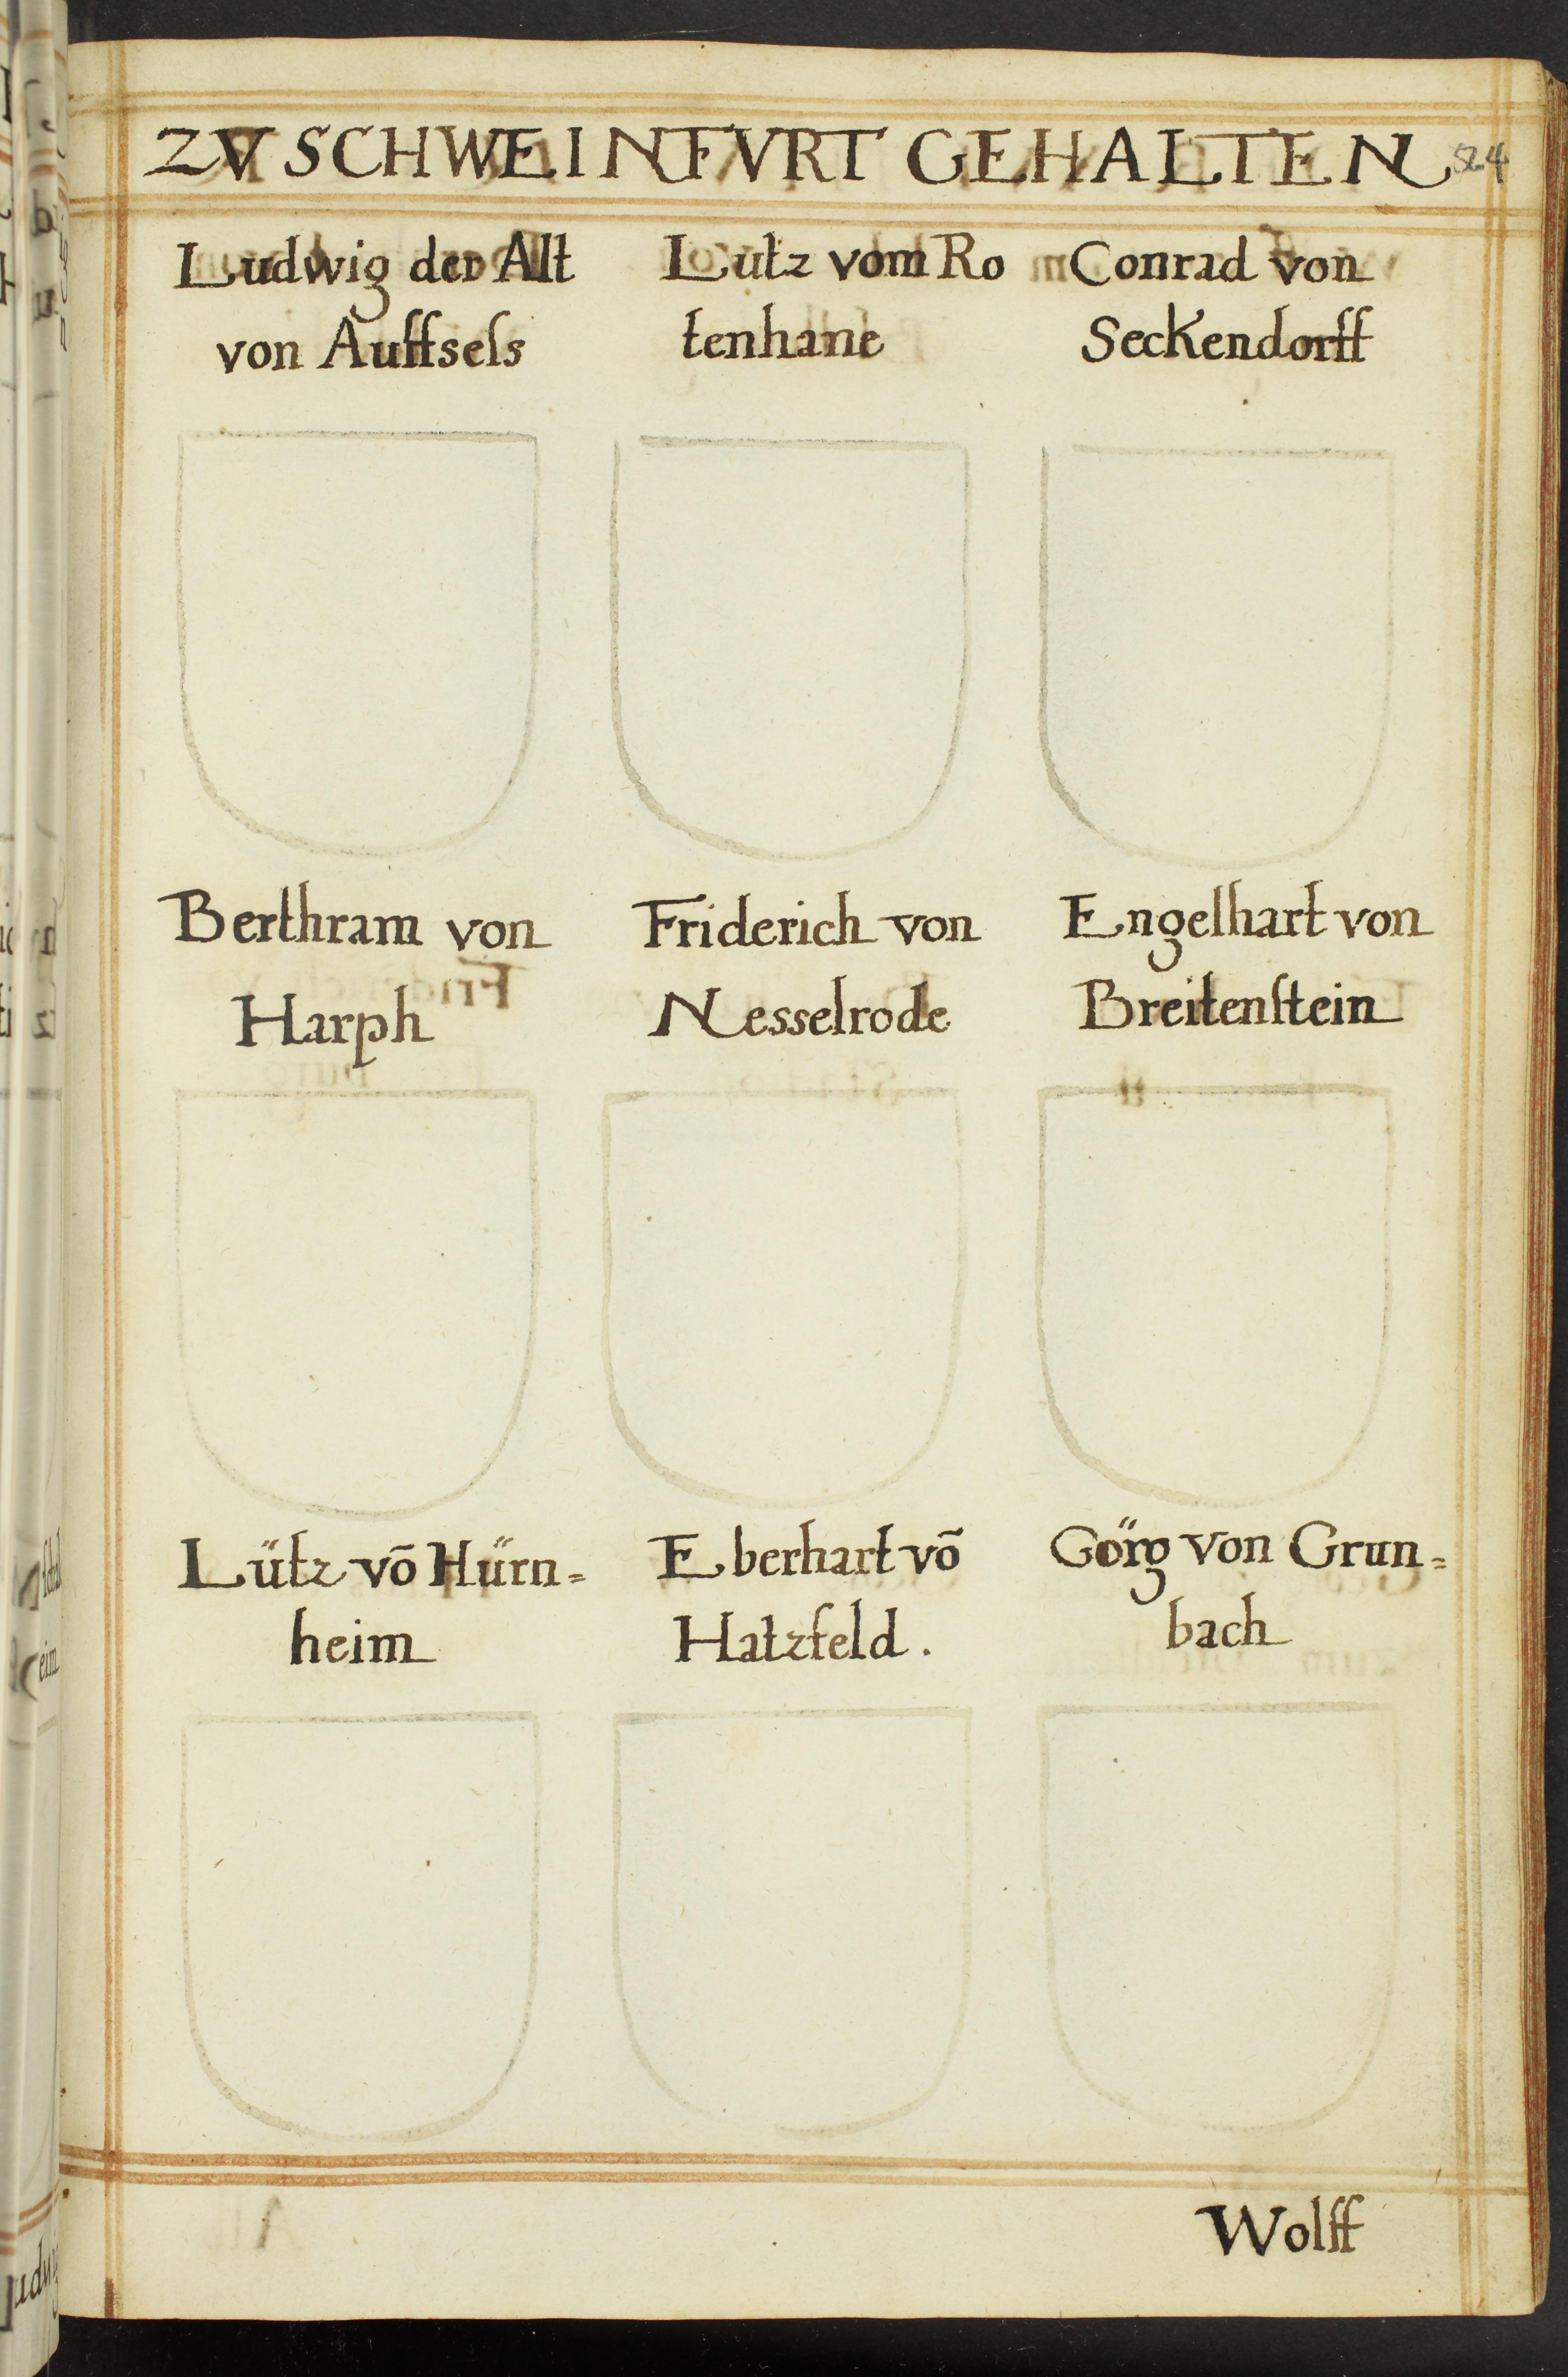 ZV SCHWEINFVRT GEHALTEN 524
Ludwig der Alt
von Auffsels
Lutz vom Ro
tenhane
Conrad von
Seckendorff
Berthram von
Harph
Friderich von
Nesselrode
Engelhart von
Breitenstein
Lütz võ Hürn=
heim
Eberhart võ
Hatzfeld.
Görg von Grun=
bach
Wolff